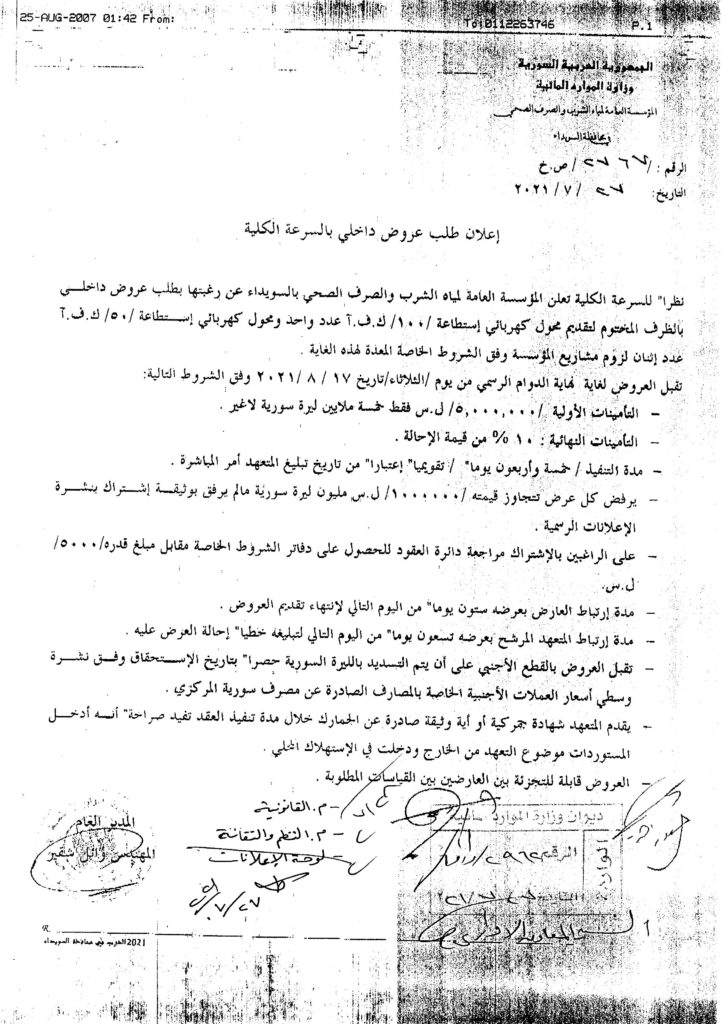 25-AUG-2007 01:42 From: To:0112263746 P.1
الجمهورية العربية السورية
وزارة الموارد المائية
المؤسسة العامة لمياه الشرب والصرف الصحي
في محافظة السويداء
الرقم : / ٢٧٦٧ / ص.خ
التاريخ: ٢٧ / ٧ / ٢٠٢١
إعلان طلب عروض داخلي بالسرعة الكلية
نظرا" للسرعة الكلية تعلن المؤسسة العامة لمياه الشرب والصرف الصحي بالسويداء عن رغبتها بطلب عروض داخلــي
بالظرف المختوم لتقديم محول كهربائي إستطاعة /١٠٠/ ك.ف.آ عدد واحد ومحول كهربائي إســتطاعة /٥٠/ ك.ف.آ
عدد إثنان لزوم مشاريع المؤسسة وفق الشروط الخاصة المعدة لهذه الغاية .
تقبل العروض لغاية نهاية الدوام الرسمي من يوم /الثلاثاء/تاريخ ١٧ / ٨ / ٢٠٢١ وفق الشروط التالية:
– التأمينات الأولية /٥,٠٠٠,٠٠٠/ ل.س فقط خمسة ملايين ليرة سورية لاغير .
– التأمينات النهائية : ١٠ % من قيمة الإحالة .
– مدة التنفيذ / خمسة وأربعون يوما" / تقويميا" إعتبارا" من تاريخ تبليغ المتعهد أمر المباشرة .
– يرفض كل عرض تتجاوز قيمته /١٠٠٠٠٠٠/ ل.س مليون ليرة سورية مالم يرفق بوثيقــة إشــتراك بنشــرة
الإعلانات الرسمية .
– على الراغبين بالإشتراك مراجعة دائرة العقود للحصول على دفاتر الشروط الخاصة مقابل مبلغ قدره/٥٠٠٠/
ل.س.
– مدة إرتباط العارض بعرضه ستون يوما" من اليوم التالي لإنتهاء تقديم العروض .
– مدة إرتباط المتعهد المرشح بعرضه تسعون يوما" من اليوم التالي لتبليغه خطيا" إحالة العرض عليه .
– تقبل العروض بالقطع الأجنبي على أن يتم التسديد بالليرة السورية حصرا" بتاريخ الإستحقاق وفــق نشــرة
وسطي أسعار العملات الأجنبية الخاصة بالمصارف الصادرة عن مصرف سورية المركزي .
– يقدم المتعهد شهادة جمركية أو أية وثيقة صادرة عن الجمارك خلال مدة تنفيذ العقد تفيد صراحة" أنــه أدخــل
المستوردات موضوع التعهد من الخارج ودخلت في الإستهلاك المحلي .
– العروض قابلة للتجزئة بين العارضين بين القياسات المطلوبة .
المدير العام
المهندس وائل شقير
– م. القانونية
– م. النظم والتقانة
لوحة الإعلانات
ديوان وزارة الموارد المائية
الرقم